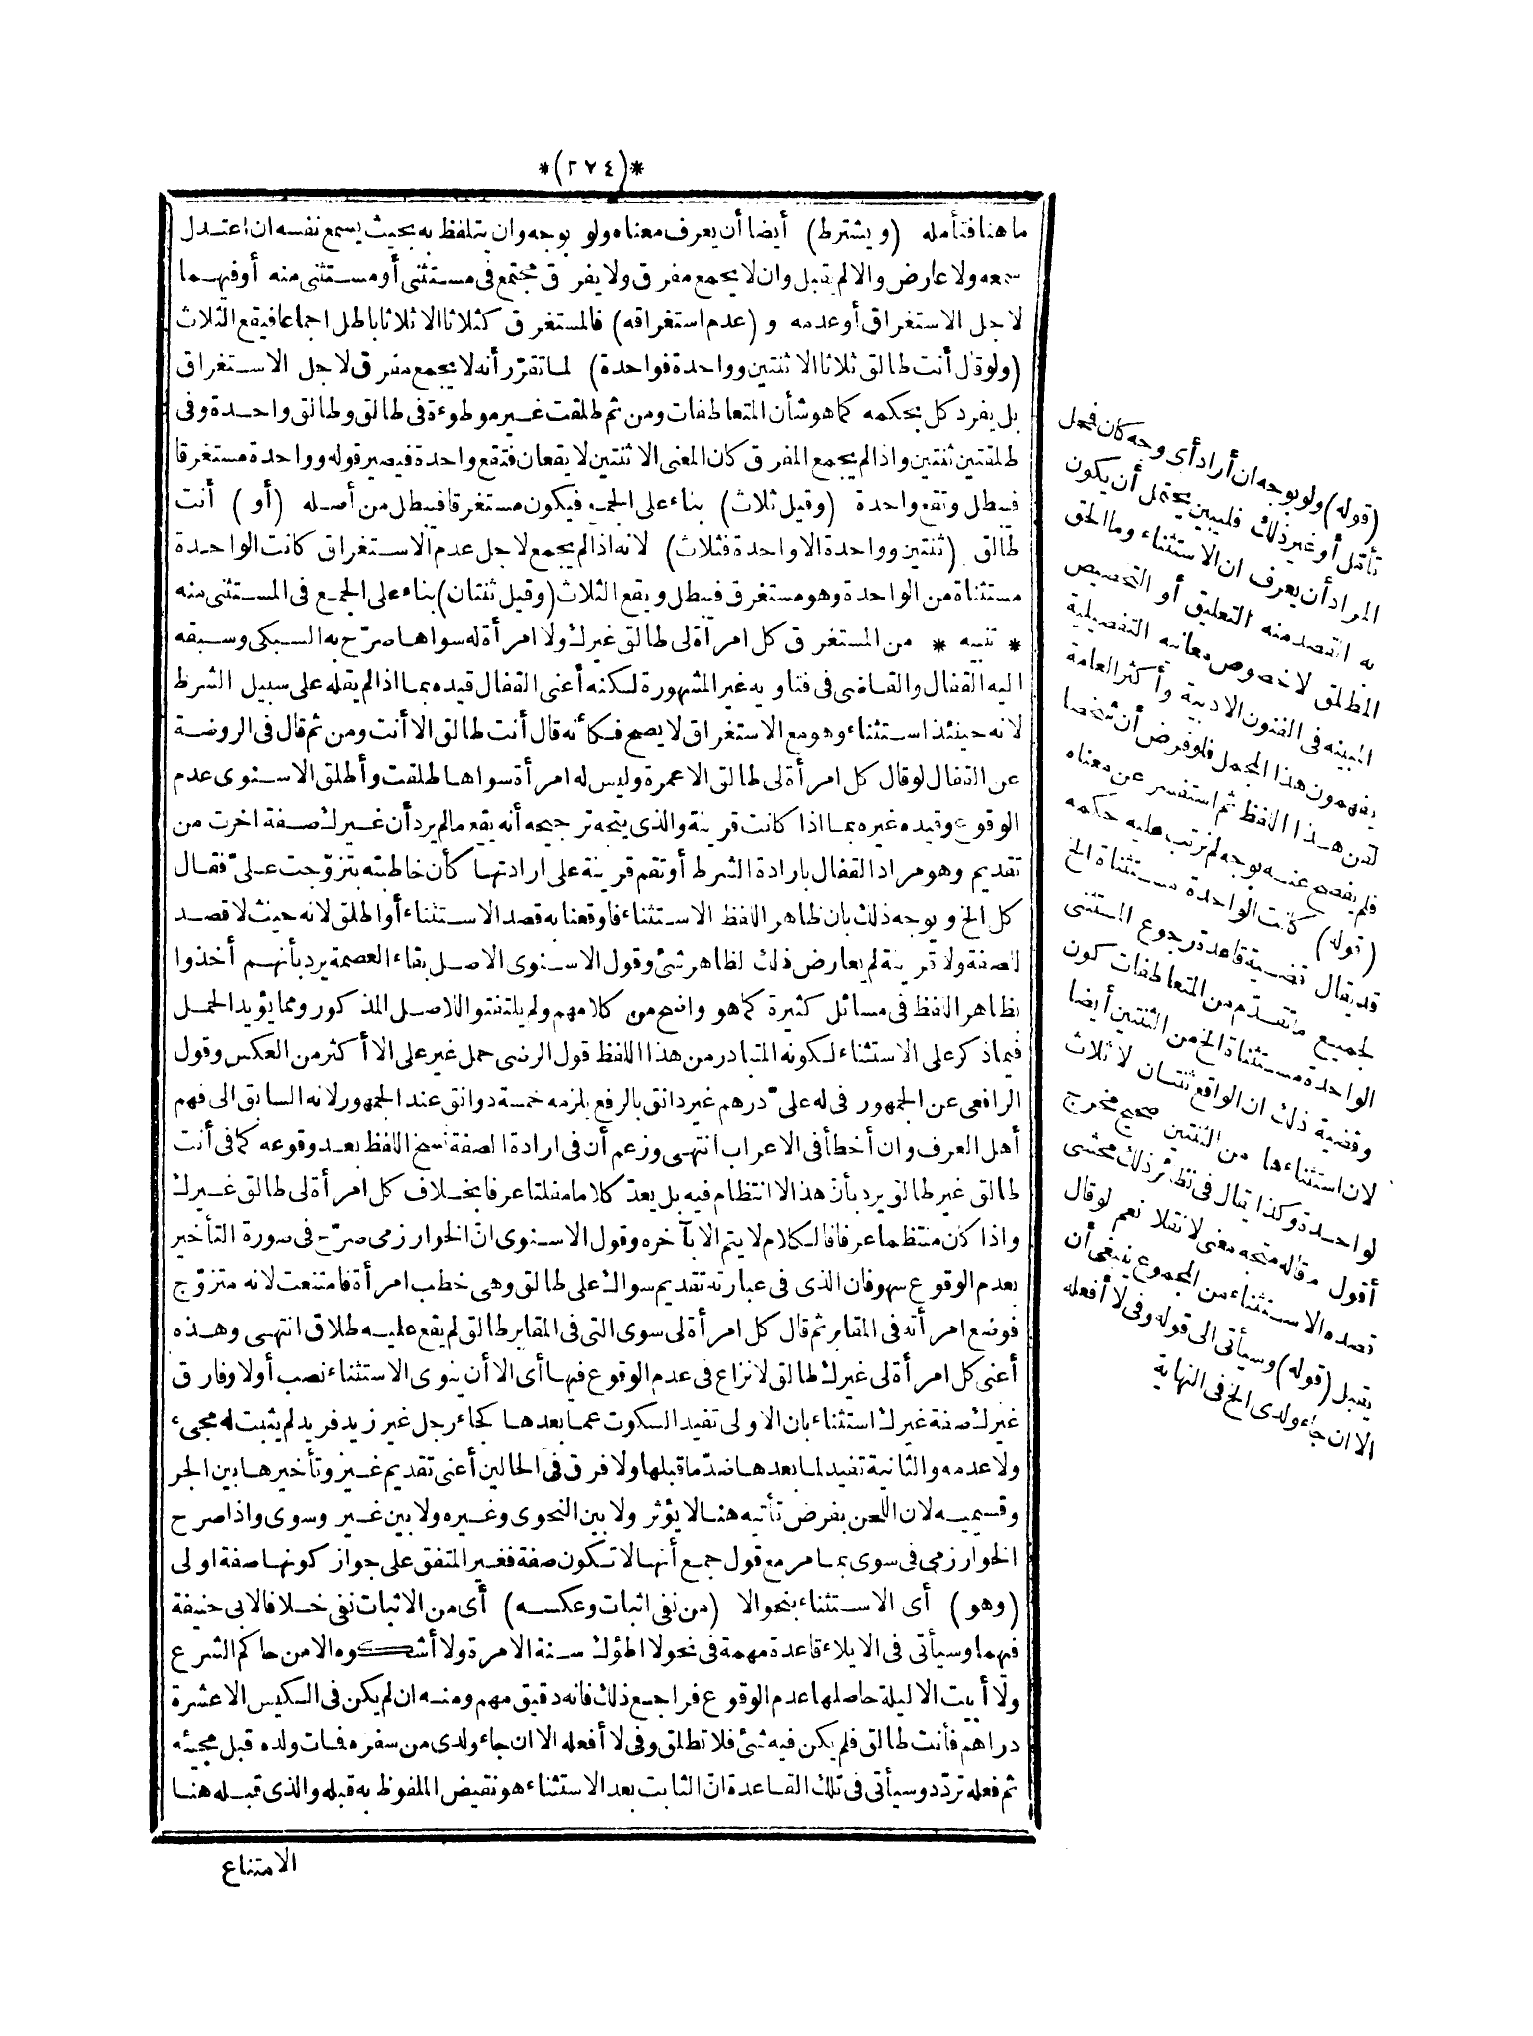 *(٢٧٤)*
ما هنا فتأمله (ويشترط) أيضا أن يعرف معناه ولو بوجه وان يتلفظ به بحيث يسمع نفسه ان اعتدل
سمعه ولا عارض والا لم يقبل وان لا يجمع مفرق ولا يفرق مجتمع في مستثنى أو مستثنى منه أو فيهما
لاجل الاستغراق أو عدمه و (عدم استغراقه) فالمستغرق كثلاثا الا ثلاثا باطل اجماعا فيقع الثلاث
(ولو قال أنت طالق ثلاثا الا ثنتين وواحدة فواحدة) لما تقرّر أنه لا يجمع مفرق لاجل الاستغراق
بل يفرد كل بحكمه كما هو شأن المتعاطفات ومن ثم طلقت غير موطوءة في طالق وطالق واحدة وفي
طلقتين ثنتين واذا لم يجمع المفرق كان المعنى الا ثنتين لا يقعان فتقع واحدة فيصير قوله وواحدة مستغرقا
فيبطل وتقع واحدة (وقيل ثلاث) بناء على الجمع فيكون مستغرقا فيبطل من أصله (أو) أنت
طالق (ثنتين وواحدة الا واحدة فثلاث) لانه اذا لم يجمع لاجل عدم الاستغراق كانت الواحدة
مستثناة من الواحدة وهو مستغرق فيبطل ويقع الثلاث (وقيل ثنتان) بناء على الجمع في المستثنى منه
* تنبيه * من المستغرق كل امرأة لى طالق غيرك ولا امرأة له سواها صرّح به السبكى وسبقه
اليه القفال والقاضى في فتاويه غير المشهورة لكنه أعنى القفال قيده بما اذا لم يقله على سبيل الشرط
لانه حينئذ استثناء وهو مع الاستغراق لا يصح فكأنه قال أنت طالق الا أنت ومن ثم قال في الروضة
عن القفال لو قال كل امرأة لى طالق الا عمرة وليس له امرأة سواها طلقت وأطلق الاسنوى عدم
الوقوع وقيده غيره بما اذا كانت قرينة والذى يتجه ترجيحه أنه يقع ما لم يرد أن غيرك صفة اخرت من
تقديم وهو مراد القفال بارادة الشرط أو تقم قرينة على ارادتها كأن خاطبته بتزوّجت علىّ فقال
كل الخ ويوجه ذلك بان ظاهر اللفظ الاستثناء فاوقعنا به قصد الاستثناء أو اطلق لانه حيث لا قصد
للصفة ولا قرينة لم يعارض ذلك لظاهر شئ وقول الاسنوى الاصل بقاء العصمة يرد بأنهم أخذوا
بظاهر اللفظ في مسائل كثيرة كما هو واضح من كلامهم ولم يلتفتوا للاصل المذكور ومما يؤيد الحمل
فيما ذكر على الاستثناء لكونه المتبادر من هذا اللفظ قول الرضى حمل غير على الا أكثر من العكس وقول
الرافعى عن الجمهور في له علىّ درهم غير دانق بالرفع يلزمه خمسة دوانق عند الجمهور لانه السابق الى فهم
أهل العرف وان أخطأ في الاعراب انتهى وزعم أن في ارادة الصفة نسخ اللفظ بعد وقوعه كما في أنت
طالق غير طالق يرد بأن هذا لا انتظام فيه بل يعدّ كلاما مفلتا عرفا بخلاف كل امرأة لى طالق غيرك
واذا كان منتظما عرفا فالكلام لا يتم الا بآخره وقول الاسنوى انّ الخوارزمى صرّح في صورة التأخير
بعدم الوقوع سهو فان الذى في عبارته تقديم سواك على طالق وهى خطب امرأة فامتنعت لانه متزوّج
فوضع امرأته في المقابر ثم قال كل امرأة لى سوى التى في المقابر طالق لم يقع عليه طلاق انتهى وهذه
أعنى كل امرأة لى غيرك طالق لا نزاع في عدم الوقوع فيها أى الا أن ينوى الاستثناء نصب أولا وفارق
غيرك صفة غيرك استثناء بان الاولى تفيد السكوت عما بعدها كجاء رجل غير زيد فزيد لم يثبت له مجىء
ولا عدمه والثانية تفيد لما بعدها ضدّ ما قبلها ولا فرق في الحالين أعنى تقديم غير وتأخيرها بين الجر
وقسيميه لان اللحن بفرض تأتيه هنا لا يؤثر ولا بين النحوى وغيره ولا بين غير وسوى واذا صرح
الخوارزمى في سوى بما مر مع قول جمع أنها لا تكون صفة فغير المتفق على جواز كونها صفة اولى
(وهو) أى الاستثناء بنحو الا (من نفى اثبات وعكسه) أى من الاثبات نفى خلافا لابى حنيفة
فيهما وسيأتى في الايلاء قاعدة مهمة في نحو لا اطؤك سنة الا مرة ولا أشكوه الا من حاكم الشرع
ولا أبيت الا ليلة حاصلها عدم الوقوع فراجع ذلك فانه دقيق مهم ومنه ان لم يكن في الكيس الا عشرة
دراهم فأنت طالق فلم يكن فيه شئ فلا تطلق وفى لا أفعله الا ان جاء ولدى من سفره فمات ولده قبل مجيئه
ثم فعله تردّد وسيأتى في تلك القاعدة انّ الثابت بعد الاستثناء هو نقيض الملفوظ به قبله والذى قبله هنا
الامتناع
(قوله) ولو بوجه ان أراد أى وجه كان فمحل
تأمل أو غير ذلك فليبين يحتمل أن يكون
المراد أن يعرف ان الاستثناء وما الحق
به القصد منه التعليق أو التخصيص
المطلق لا خصوص معانيه التفصيلية
المبينه في الفنون الادبية وأكثر العامة
يفهمون هذا المجمل فلو فرض أن شخصا
لقن هذا اللفظ ثم استفسر عن معناه
فلم يفصح عنه بوجه لم نرتب عليه حكمه
(قوله) كانت الواحدة مستثناة الخ
قد يقال قضية قاعدة رجوع المستثنى
لجميع ما تقدّم من المتعاطفات كون
الواحدة مستثناة الخ من الثنتين أيضا
وقضية ذلك ان الواقع ثنتان لا ثلاث
لان استثناءها من الثنتين صحيح مخرج
لواحدة وكذا يقال في نظائر ذلك محشى
أقول ما قاله متجه معنى لا نقلا نعم لو قال
قصده الاستثناء من المجموع ينبغى أن
يقبل (قوله) وسيأتى الى قوله وفى لا أفعله
الا ان جاء ولدى الخ في النهاية